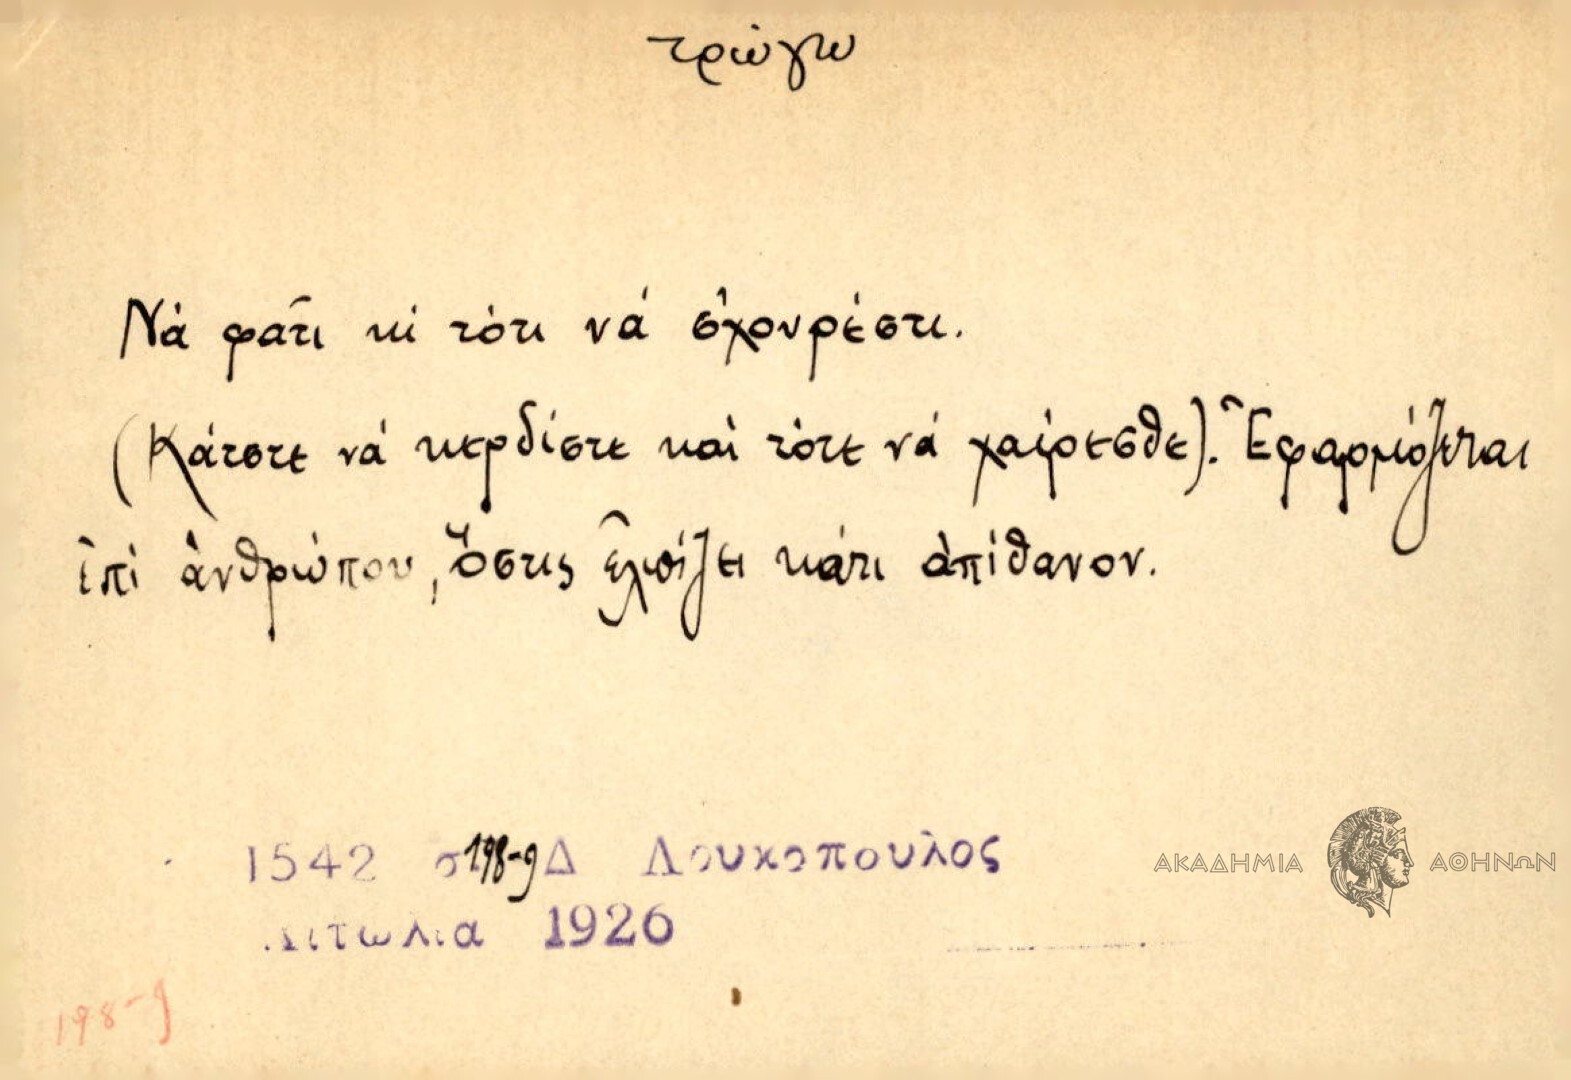 τρώγω
Νά φᾶτι κί τότι νά σ̓χουρέστι.
(Κάτστε νά κερδίστε καί τότε νά χαίρεσθε). Ἐφαρμόζεται
ἐπί ἀνθρώπου, ὅστις ἐλπίζει κάτι ἀπίθανον.
1542 σ 198-9 Δ Λουκοπουλος
Αιτωλια 1926
198-9
ΑΚΑΔΗΜΙΑ ΑΘΗΝΩΝ